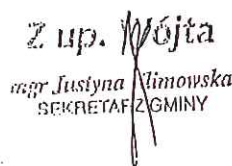 Z up. Wójta
mgr Justyna Klimowska
SEKRETARZ GMINY